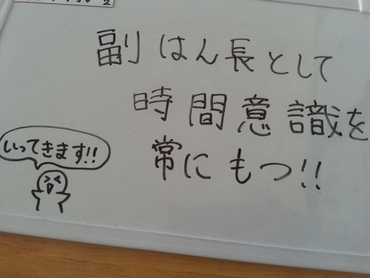 副はん長として
時間意識を
常にもつ!!
いってきます!!